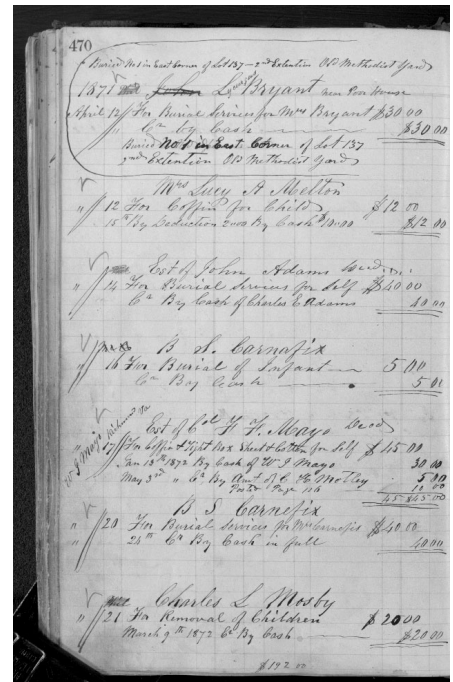 470
Buried No 1 in East Corner of Lot 137 - 2nd Extention Old Methodist Yard
1871 John L Bryant near Poor House
April 12 For Burial Services for Mrs Bryant $30 00
" Cr by Cash $30 00
Buried No 1 in East Corner of Lot 137
2nd Extention Old Methodist Yard
Mrs Lucy A Melton
" 12 For Coffin for Child $12 00
15th By Deduction 2.00 By Cash $10.00 $12 00
Est of John Adams
" 14 For Burial Services for Self $40 00
Cr By Cash of Charles E Adams 40 00
B S. Carnefix
" 16 For Burial of Infant 5 00
Cr By Cash 5 00
Est of Col F. F. Mayo Decd
W J Mayo Richmond Va
" 17 For Coffin & Tight Box Sheet & Cotton for Self $45 00
Jan 13th 1872 By Cash of W J Mayo 30 00
May 3rd " Cr By Amt of C Motley 5 00
Posted Page 116 10 00
45 $45.00
B S Carnefix
" 20 For Burial Services for Mrs Carnefix $40.00
24th Cr By Cash in full 40 00
Charles L Mosby
" 21 For Removal of Children $20 00
March 9th 1872 Cr By Cash $20.00
$192 00